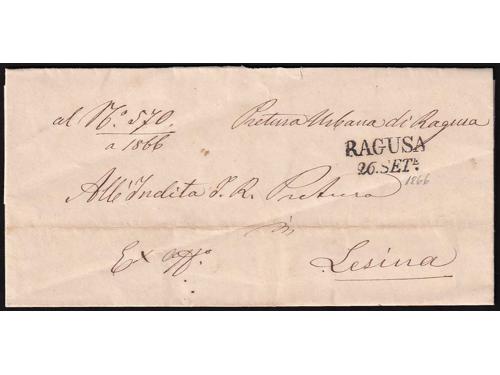 al N.o 570. Pretura Urbana di Ragusa
a 1866
RAGUSA
26.SETE.
1866
All'Inclita I. R. Pretura
in
Ex offo.
Lesina